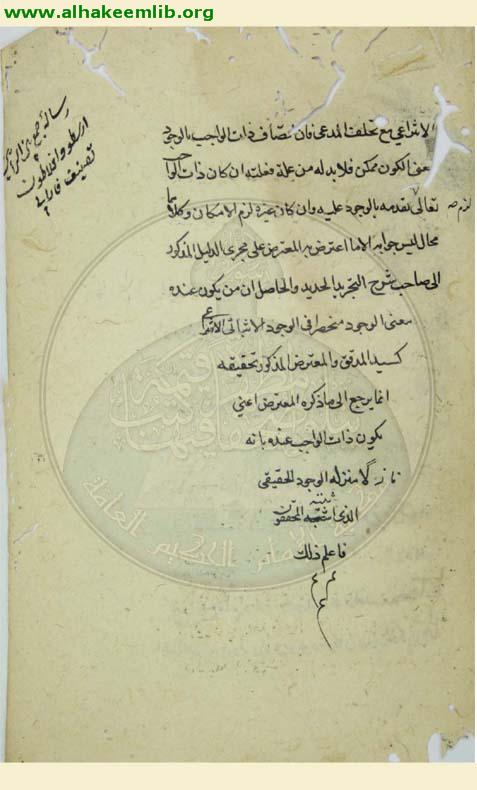 www.alhakeemlib.org
رسالة جمع بين الرأيين
ارسطو وافلاطون
تصنيف فارابي
الانتزاعي مع تخلف المدعى فان مصاف ذات الواجب بالوجود
بمعنى الكون ممكن فلا بد له من علة فعلته ان كان ذات الواجب
تعالى لزم تقدمه بالوجود عليه وان كان غيره لزم الامكان وكلاهما
محال ليس جوابه الا ما اعترض به المعترض على مجرى الدليل المذكور
الى صاحب شرح التجريد الجديد والحاصل ان من يكون عنده
معنى الوجود منحصر في الوجود الاثباتي الانتزاعي
كسيد المدقق والمعترض المذكور تحقيقه
انما يرجع الى ما ذكره المعترض اعني
يكون ذات الواجب عنده بانه
نازلا منزله الوجود الحقيقي
الذي اثبته المحققون
فاعلم ذلك